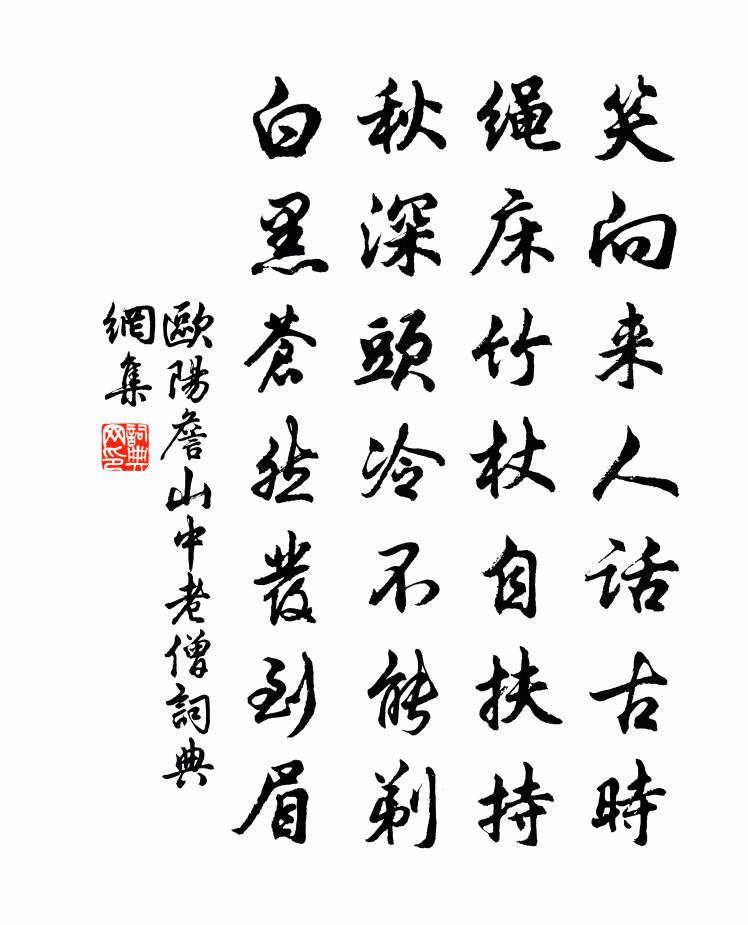 笑向来人话古時
绳床竹杖自扶持
秋深頭冷不能剃
白黑蒼然發到眉
歐陽詹山中老僧詞典
網集
詞典
网印